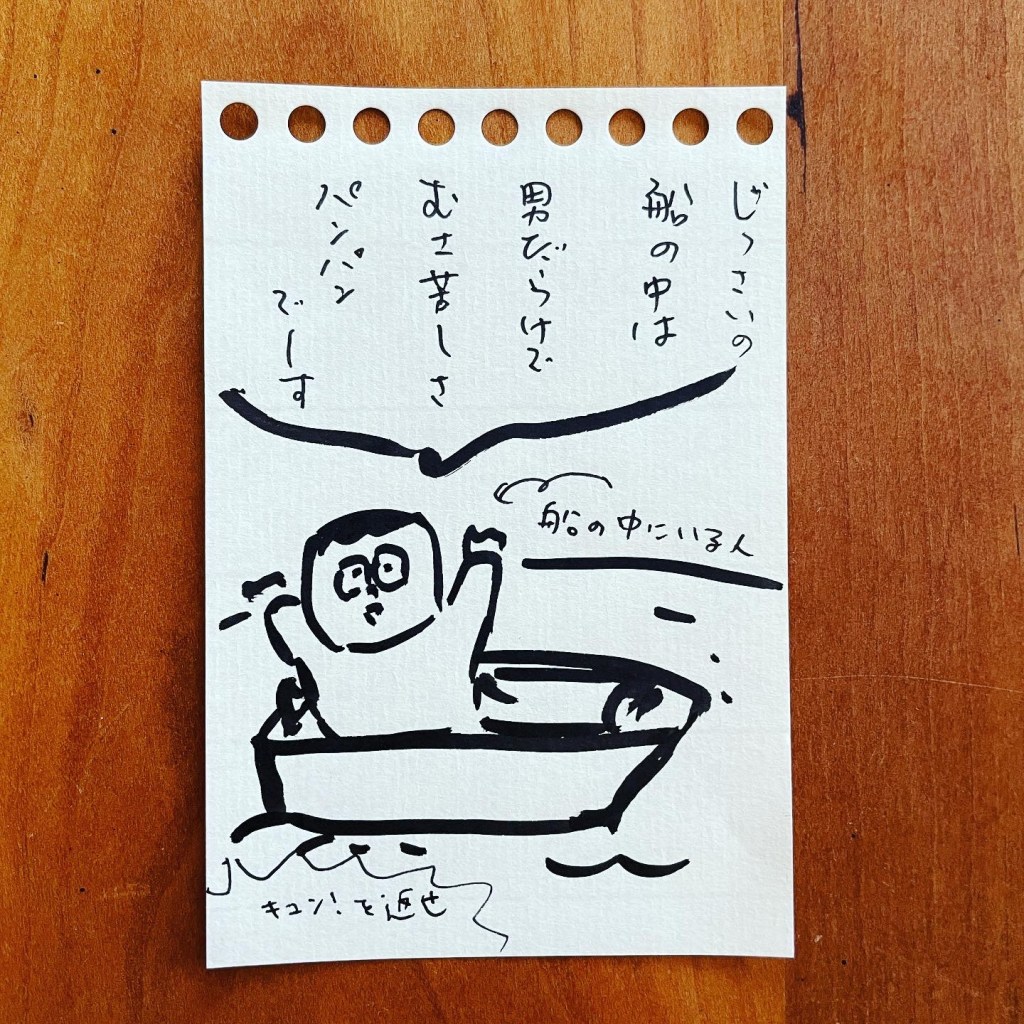 じっさいの
船の中は
男だらけで
むさ苦しさ
パンパン
でーす
船の中にいる人
キュン!を返せ